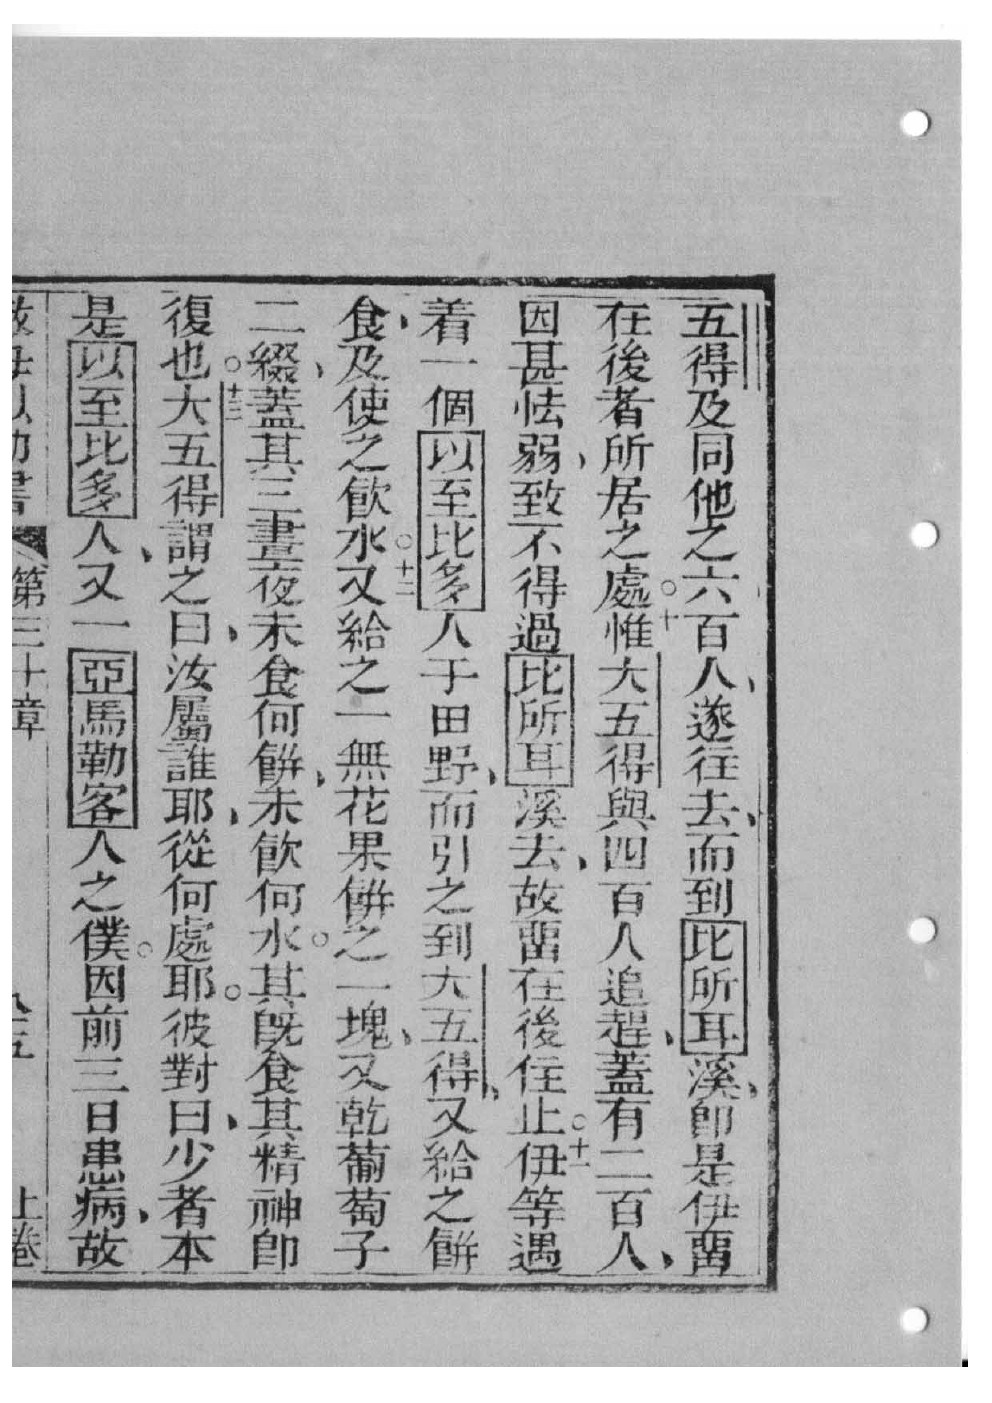 五得及同他之六百人、遂往去、而到比所耳溪、卽是伊畱
在後者所居之處。十惟大五得與四百人追趕、蓋有二百人、
因甚怯弱、致不得過比所耳溪去、故畱在後住止。十一伊等遇
着一個以至比多人于田野、而引之到大五得、又給之餠
食、及使之飮水。十二又給之一無花果餠之一塊、又乾葡萄子
二綴、蓋其三晝夜未食何餠、未飮何水。其旣食其精神卽
復也。十三大五得謂之曰、汝屬誰耶、從何處耶。彼對曰、少者本
是以至比多人、又一亞馬勒客人之僕。因前三日患病、故
書 第三十章 上卷